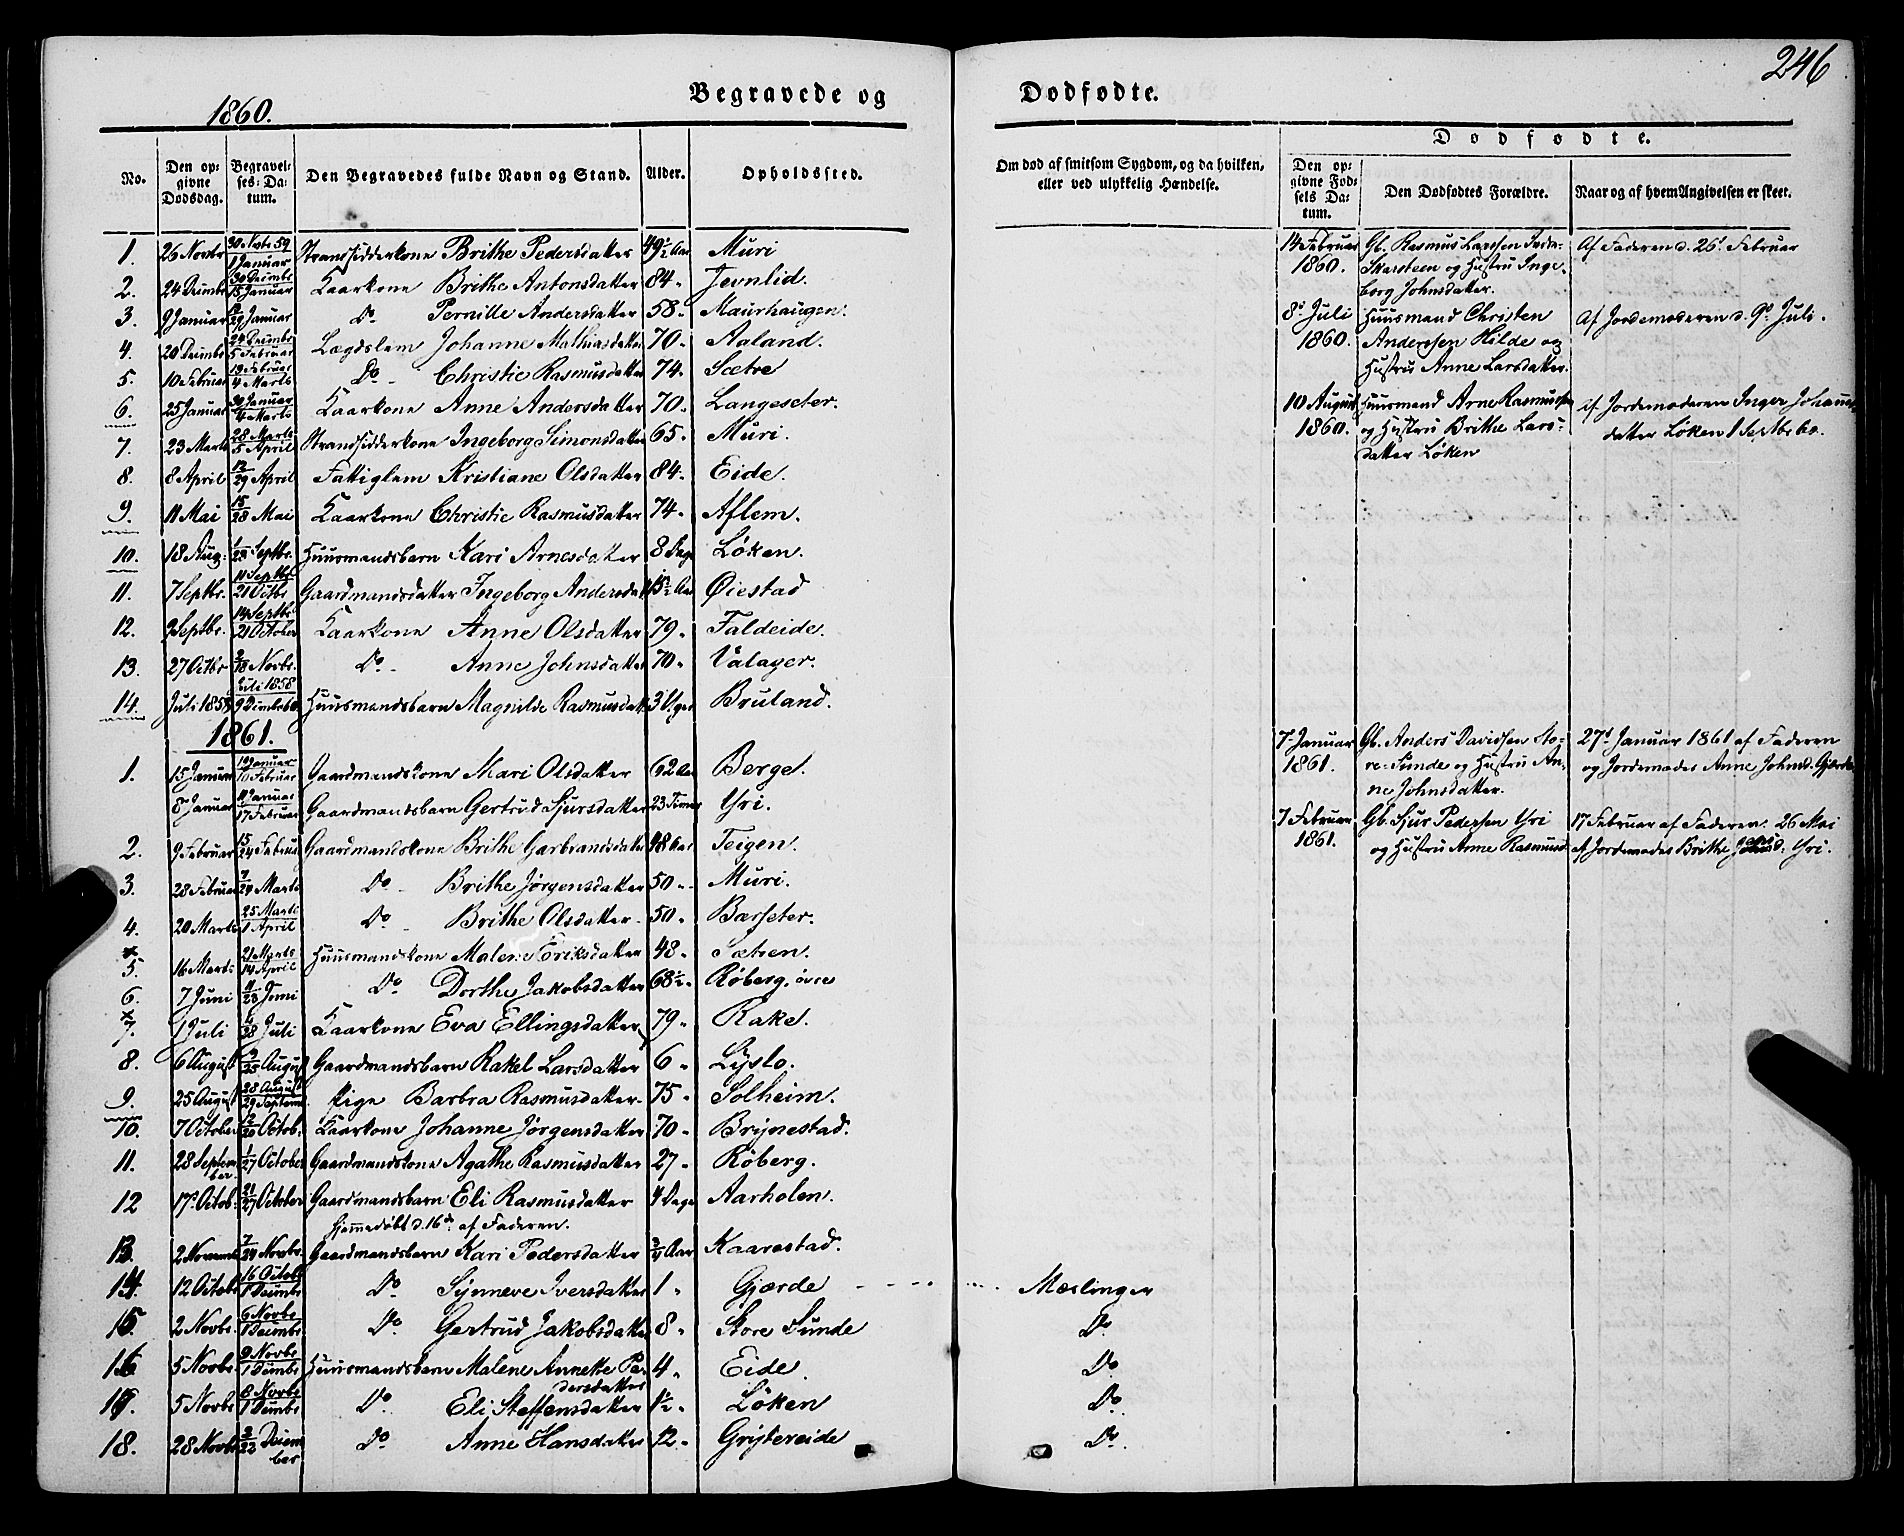 246
1860.
Begravede og Dødfødte.
No.
Den opgivne Dødsdag.
Begravelses-Datum.
Den Begravedes fulde Navn og Stand.
Alder.
Opholdssted.
Om død af smitsom Sygdom, og da hvilken, eller ved ulykkelig Hændelse.
Dødfødte.
Den opgivne Fødsels Datum.
Den Dødfødtes Forældre.
Naar og af hvem Angivelsen er skeet.
1. 26 Novbr 30 Novbr 59 / 1 Januar Strandsidderkone Brithe Pedersdatter 49½ Aar Muri
2. 24 Decmbr 30 Decmbr / 15 Januar Kaarkone Brithe Antonsdatter 84 " Jevnlid.
3. 9 Januar 29 Januar Do Pernille Andersdatter 58 " Maurhaugen.
4. 20 Decmbr 24 Decmbr / 5 Februar Lægdslem Johanne Mathiasdatter 70 " Aaland.
5. 10 Februar 19 Februar / 4 Marts Do Christie Rasmusdatter 74 " Sætre
6. 25 Januar 30 Januar / 4 Marts Kaarkone Anne Andersdatter 70 " Langeseter.
7. 23 Marts 28 Marts / 5 April Strandsidderkone Ingeborg Simonsdatter 65 " Muri.
8. 8 April 12/29 April Fattiglem Kristiane Olsdatter 84 " Eide.
9. 11 Mai 15/28 Mai Kaarkone Christie Rasmusdatter 74 " Aflem.
10. 18 Aug: 1/23 Septbr. Huusmandsbarn Kari Arnesdatter 8 Dage Løken.
11. 7 Septbr. 11 Septbr / 21 Octbr Gaardmandsdatter Ingeborg Andersdat 15½ Aar Øiestad
12. 9 Septbr. 14 Septbr / 21 October Kaarkone Anne Olsdatter 79 " Faldeide.
13. 27 Octbr 2/18 Novbr. Do Anne Johnsdatter 70 " Valager.
14. Juli 1858 Juli 1858 / 9 Decmbr 60 Huusmandsbarn Magnilde Rasmusdatt 3 Uger Bruland.
1861.
1. 15 Januar 19 Januar / 10 Februar Gaardmandskone Mari Olsdatter 62 Aar Berge.
8 Januar 11 Januar / 17 Februar Gaardmandsbarn Gertrud Sjursdatter 23 Timer Yri.
2. 9 Februar 15/24 Februar Gaardmandskone Brithe Garbrandsdatter 48 Aar Teigen.
3. 28 Februar 7/24 Marts Do Brithe Jørgensdatter 50 " Muri.
4. 20 Marts 25 Marts / 1 April Do Brithe Olsdatter 50 " Barseter.
5. 16 Marts 21 Marts / 14 April Huusmandskone Malene Eriksdatter 48 " Sætren.
6. 7 Juni 11/23 Juni Do Dorthe Jakobsdatter 68½ " Røberg, øvre
7. 1 Juli 6/28 Juli Kaarkone Eva Ellingsdatter 79 " Rake.
8. 6 August 9/25 August Gaardmandsbarn Rakel Larsdatter 6 " Lyslo.
9. 25 August 28 August / 29 Septemb Pige Barbra Rasmusdatter 75 " Solheim.
10. 7 October 12/20 Octob. Kaarkone Johanne Jørgensdatter 70 " Brynestad.
11. 28 September 1/27 October Gaardmandskone Agathe Rasmusdatter 27 " Røberg.
12 17 Octob: 21/27 October Gaardmandsbarn Eli Rasmusdatter 4 Dage Aarholen.
Hjemmedøbt d. 16de af Faderen.
13. 2 Novemb 7/24 Novbr. Gaardmandsbarn Kari Pedersdatter ¾ Aar Kaarestad.
14. 12 Octobr 16 Octob / 1 Decmbr Do Synneve Iversdatter 1 " Gjærde Mæslinger
15. 2 Novbr. 6 Novbr / 1 Decmbr Do Gertrud Jakobsdatter 8 " Store Sunde Do
16 5 Novbr. 9 Novbr / 1 Decmbr Huusmandsbarn Malene Annette Pedersdatter 4 " Eide. Do
17. 5 Novbr. 8 Novbr / 1 Decmbr Do Eli Steffensdatter 1½ " Løken Do
18. 28 Novbr 3/22 December Do Anne Hansdatter 12 " Grytereide Do
14 Februar 1860. Gb. Rasmus Larssen Indre-
Skarsteen og Hustru Inge-
borg Johnsdatter. Af Faderen d. 26de Februar
8de Juli 1860. Huusmand Christen
Anderssen Hilde og
Hustru Anne Larsdatter. Af Jordemoderen d. 9de Juli.
10 August 1860. Huusmand Arne Rasmussen
og Hustru Brithe Lars-
datter Løken af Jordemoderen Inger Johannes-
datter Løken 1 Septbr 60.
7 Januar 1861. Gb. Anders Davidsen Sto-
re-Sunde og Hustru An-
ne Johnsdatter. 27de Januar 1861 af Faderen
og Jordemoder Anne Johnsd. Gjærde
7 Februar 1861. Gb. Sjur Pedersen Yri
og Hustru Anne Rasmusd 17 Februar af Faderen. 26 Mai
af Jordemoder Brithe Yri.